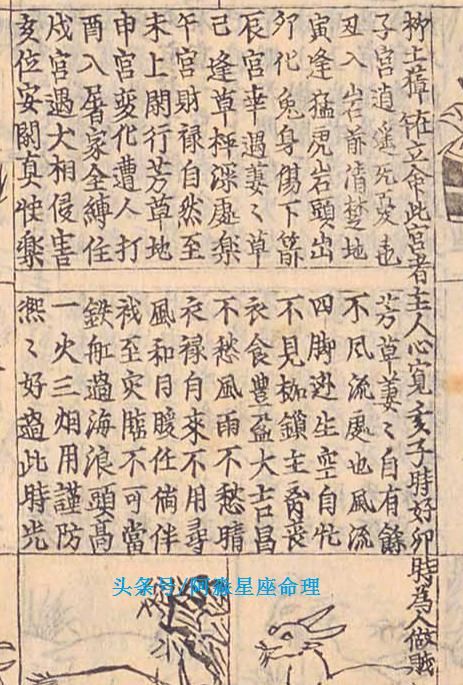 柳土獐 立命此宮者主人心寬亥子時好卯時為人做賊
子宮逍遥
芳草萋々自有餘
丑入岩前清楚地
不凡流處也風流
寅逢猛虎岩頭出
四脚迯生空自忙
夘化兔身傷下箭
不見枷鎖主喪
辰宮幸遇萋々草
衣食豊盈大吉昌
己逢草深處樂
不愁風雨不愁晴
午宮財禄自然至
衣禄自來不用尋
未上閑行芳草地
風和日暖任倘伴
申宮変化遭人打
至灾臨不可當
酉入屠家全縛住
鉄舡過海浪頭高
戌宮遇犬相侵害
一火三烟用謹防
亥位安閑真快樂
凞々好過此時光
头条号/阿淼星座命理